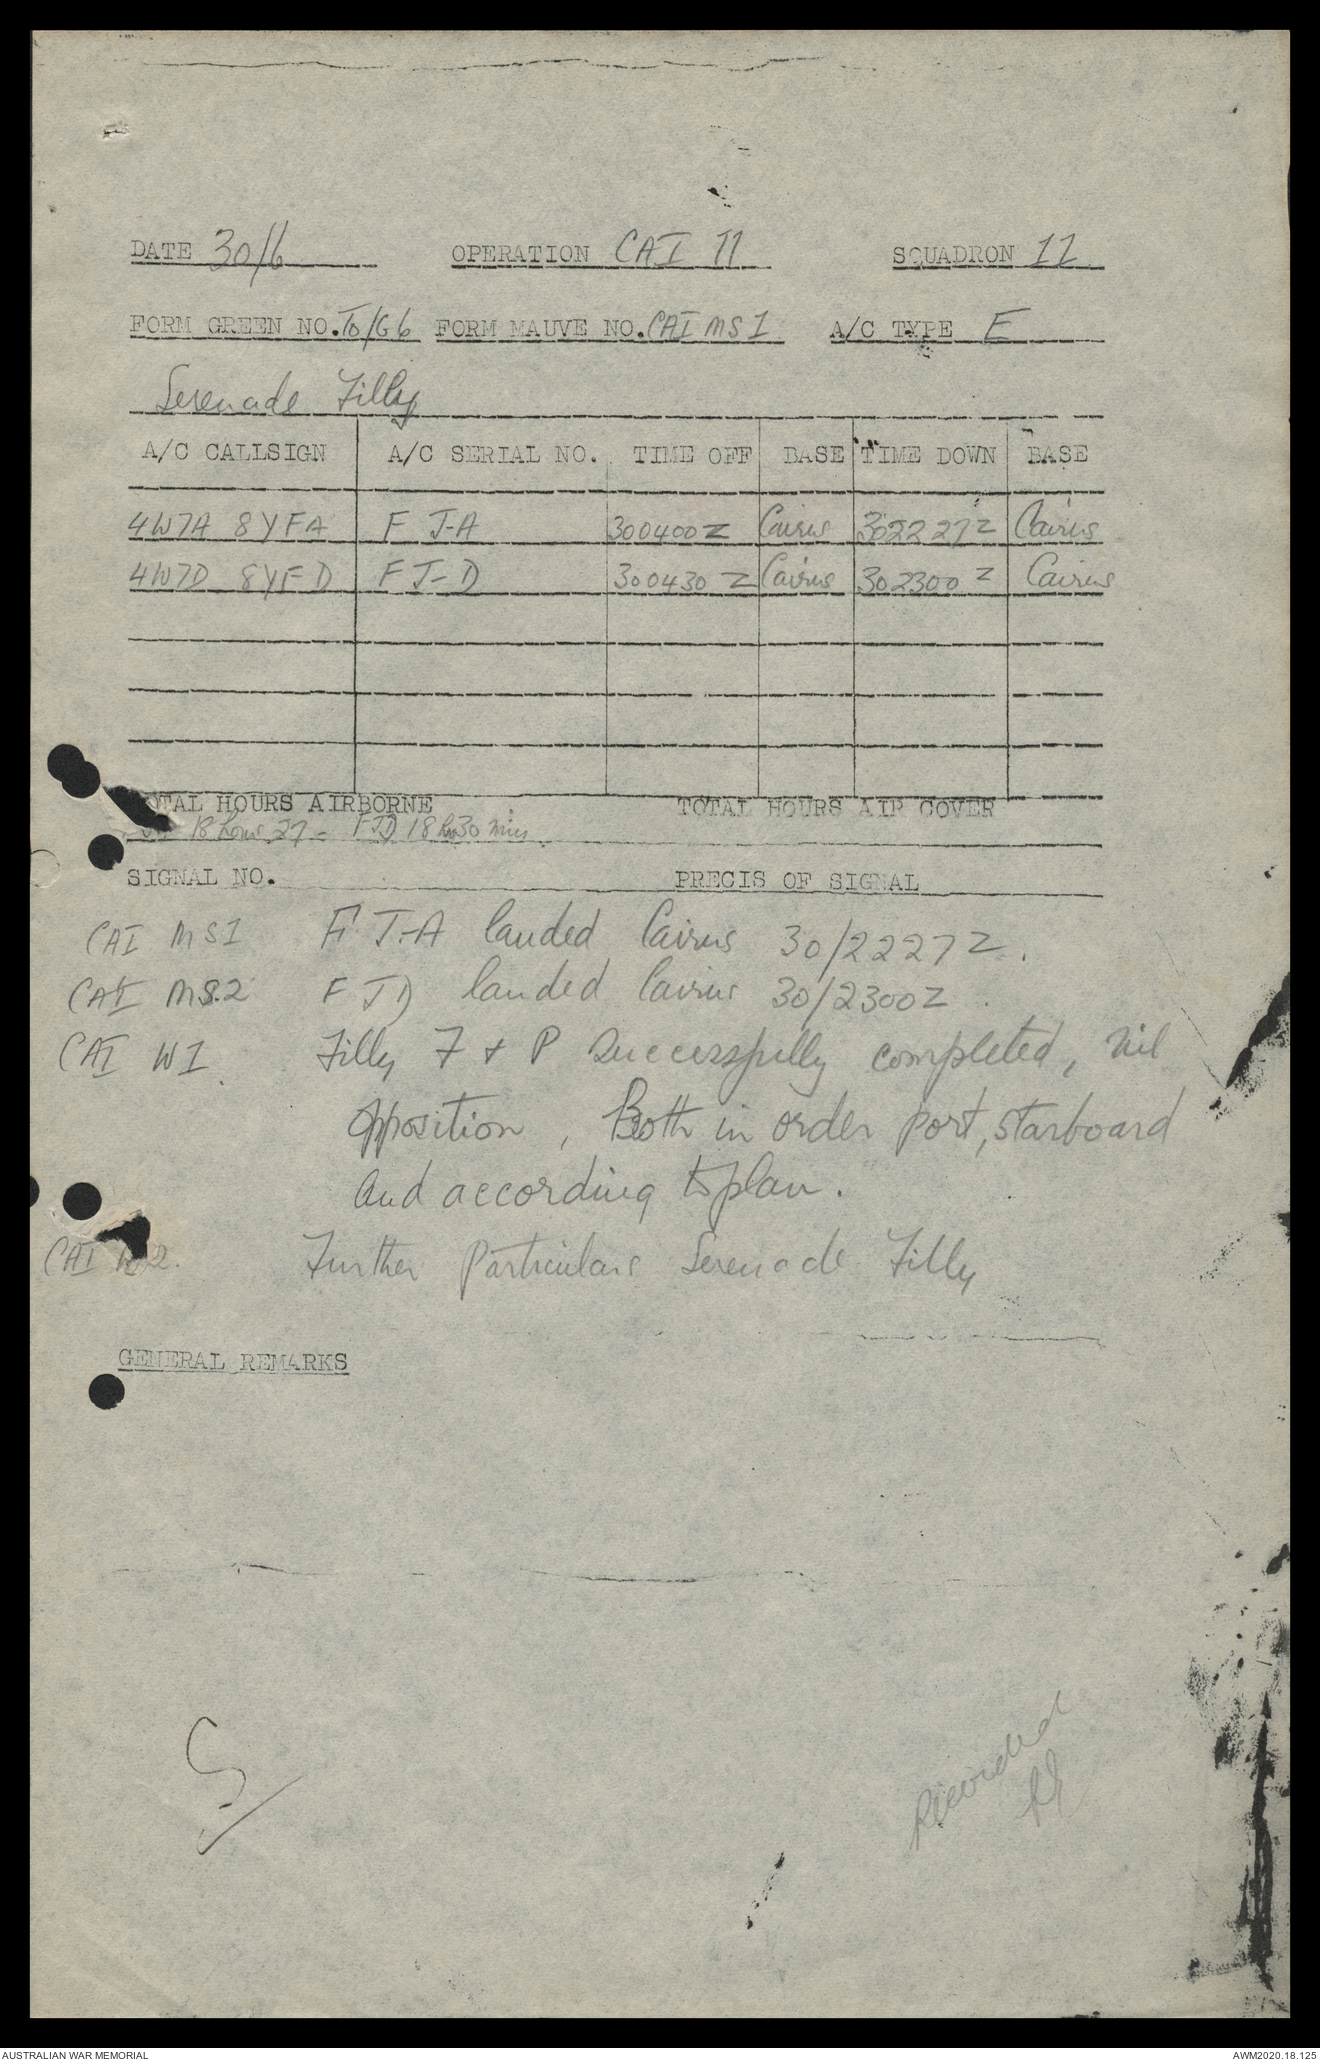 DATE 30/6 OPERATION CAI 11 SQUADRON 11
FORM GREEN NO. To/G6 FORM MAUVE NO. CAI MS1 A/C TYPE E
Serenade Filly
A/C CALLSIGN A/C SERIAL NO. TIME OFF BASE TIME DOWN BASE
4W7A 8YFA F J-A 300400Z Cairns 302227Z Cairns
4W7D 8YFD F J-D 300430Z Cairns 302300Z Cairns
TOTAL HOURS AIRBORNE TOTAL HOURS AIR COVER
18 hours 27 - FJD 18 hrs 30 mins
SIGNAL NO. PRECIS OF SIGNAL
CAI MS1 F J-A landed Cairns 30/2227Z.
CAI MS.2 F JD landed Cairns 30/2300Z.
CAI W1 Filly F + P successfully completed, nil
opposition, Both in order port, starboard
and according to plan.
CAI W2. Further Particulars Serenade Filly
GENERAL REMARKS
Recorded
AUSTRALIAN WAR MEMORIAL AWM2020.18.125